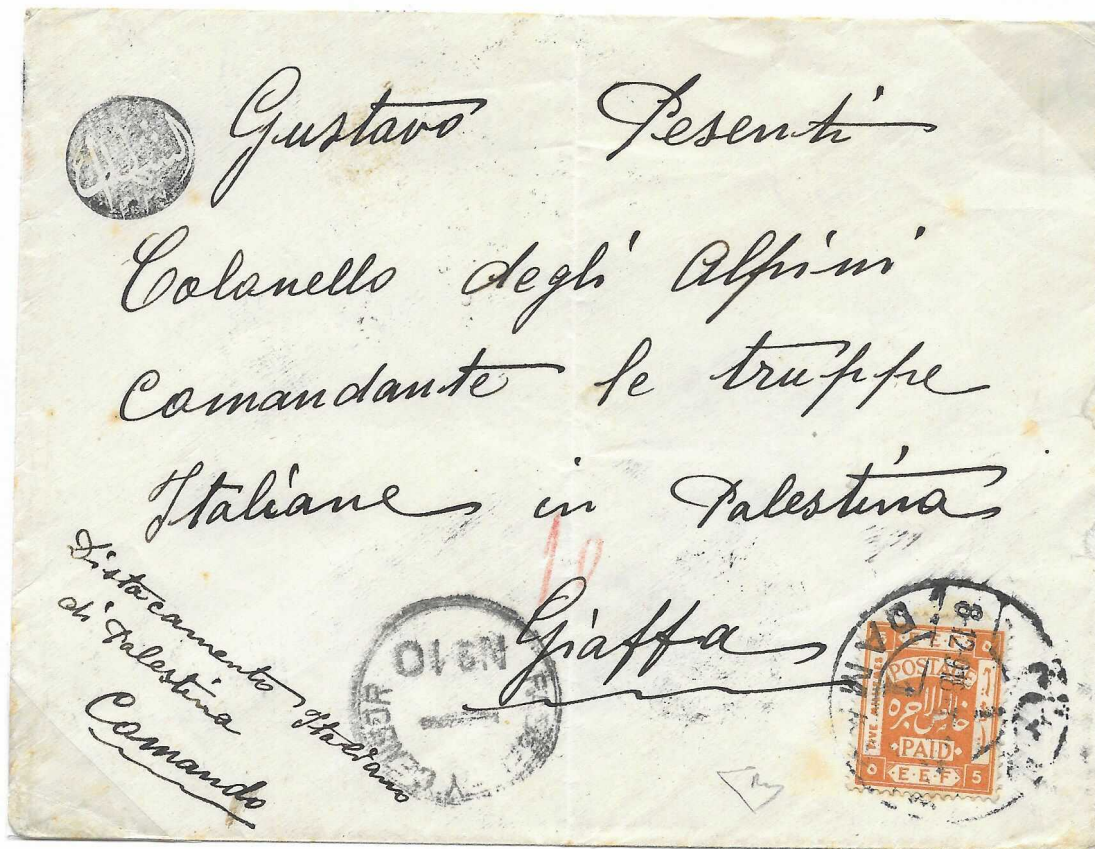 Gustavo Pesenti
Colonello degli Alpini
comandante le truppe
Italiane in Palestina
Giaffa
Distacamento Italiano
di Palestina
Comando
10
No 10
PASSED BY CENSOR
POSTAGE
خالص الاجره
PAID
E.E.F.
FIVE MILLIEMES
٥
5